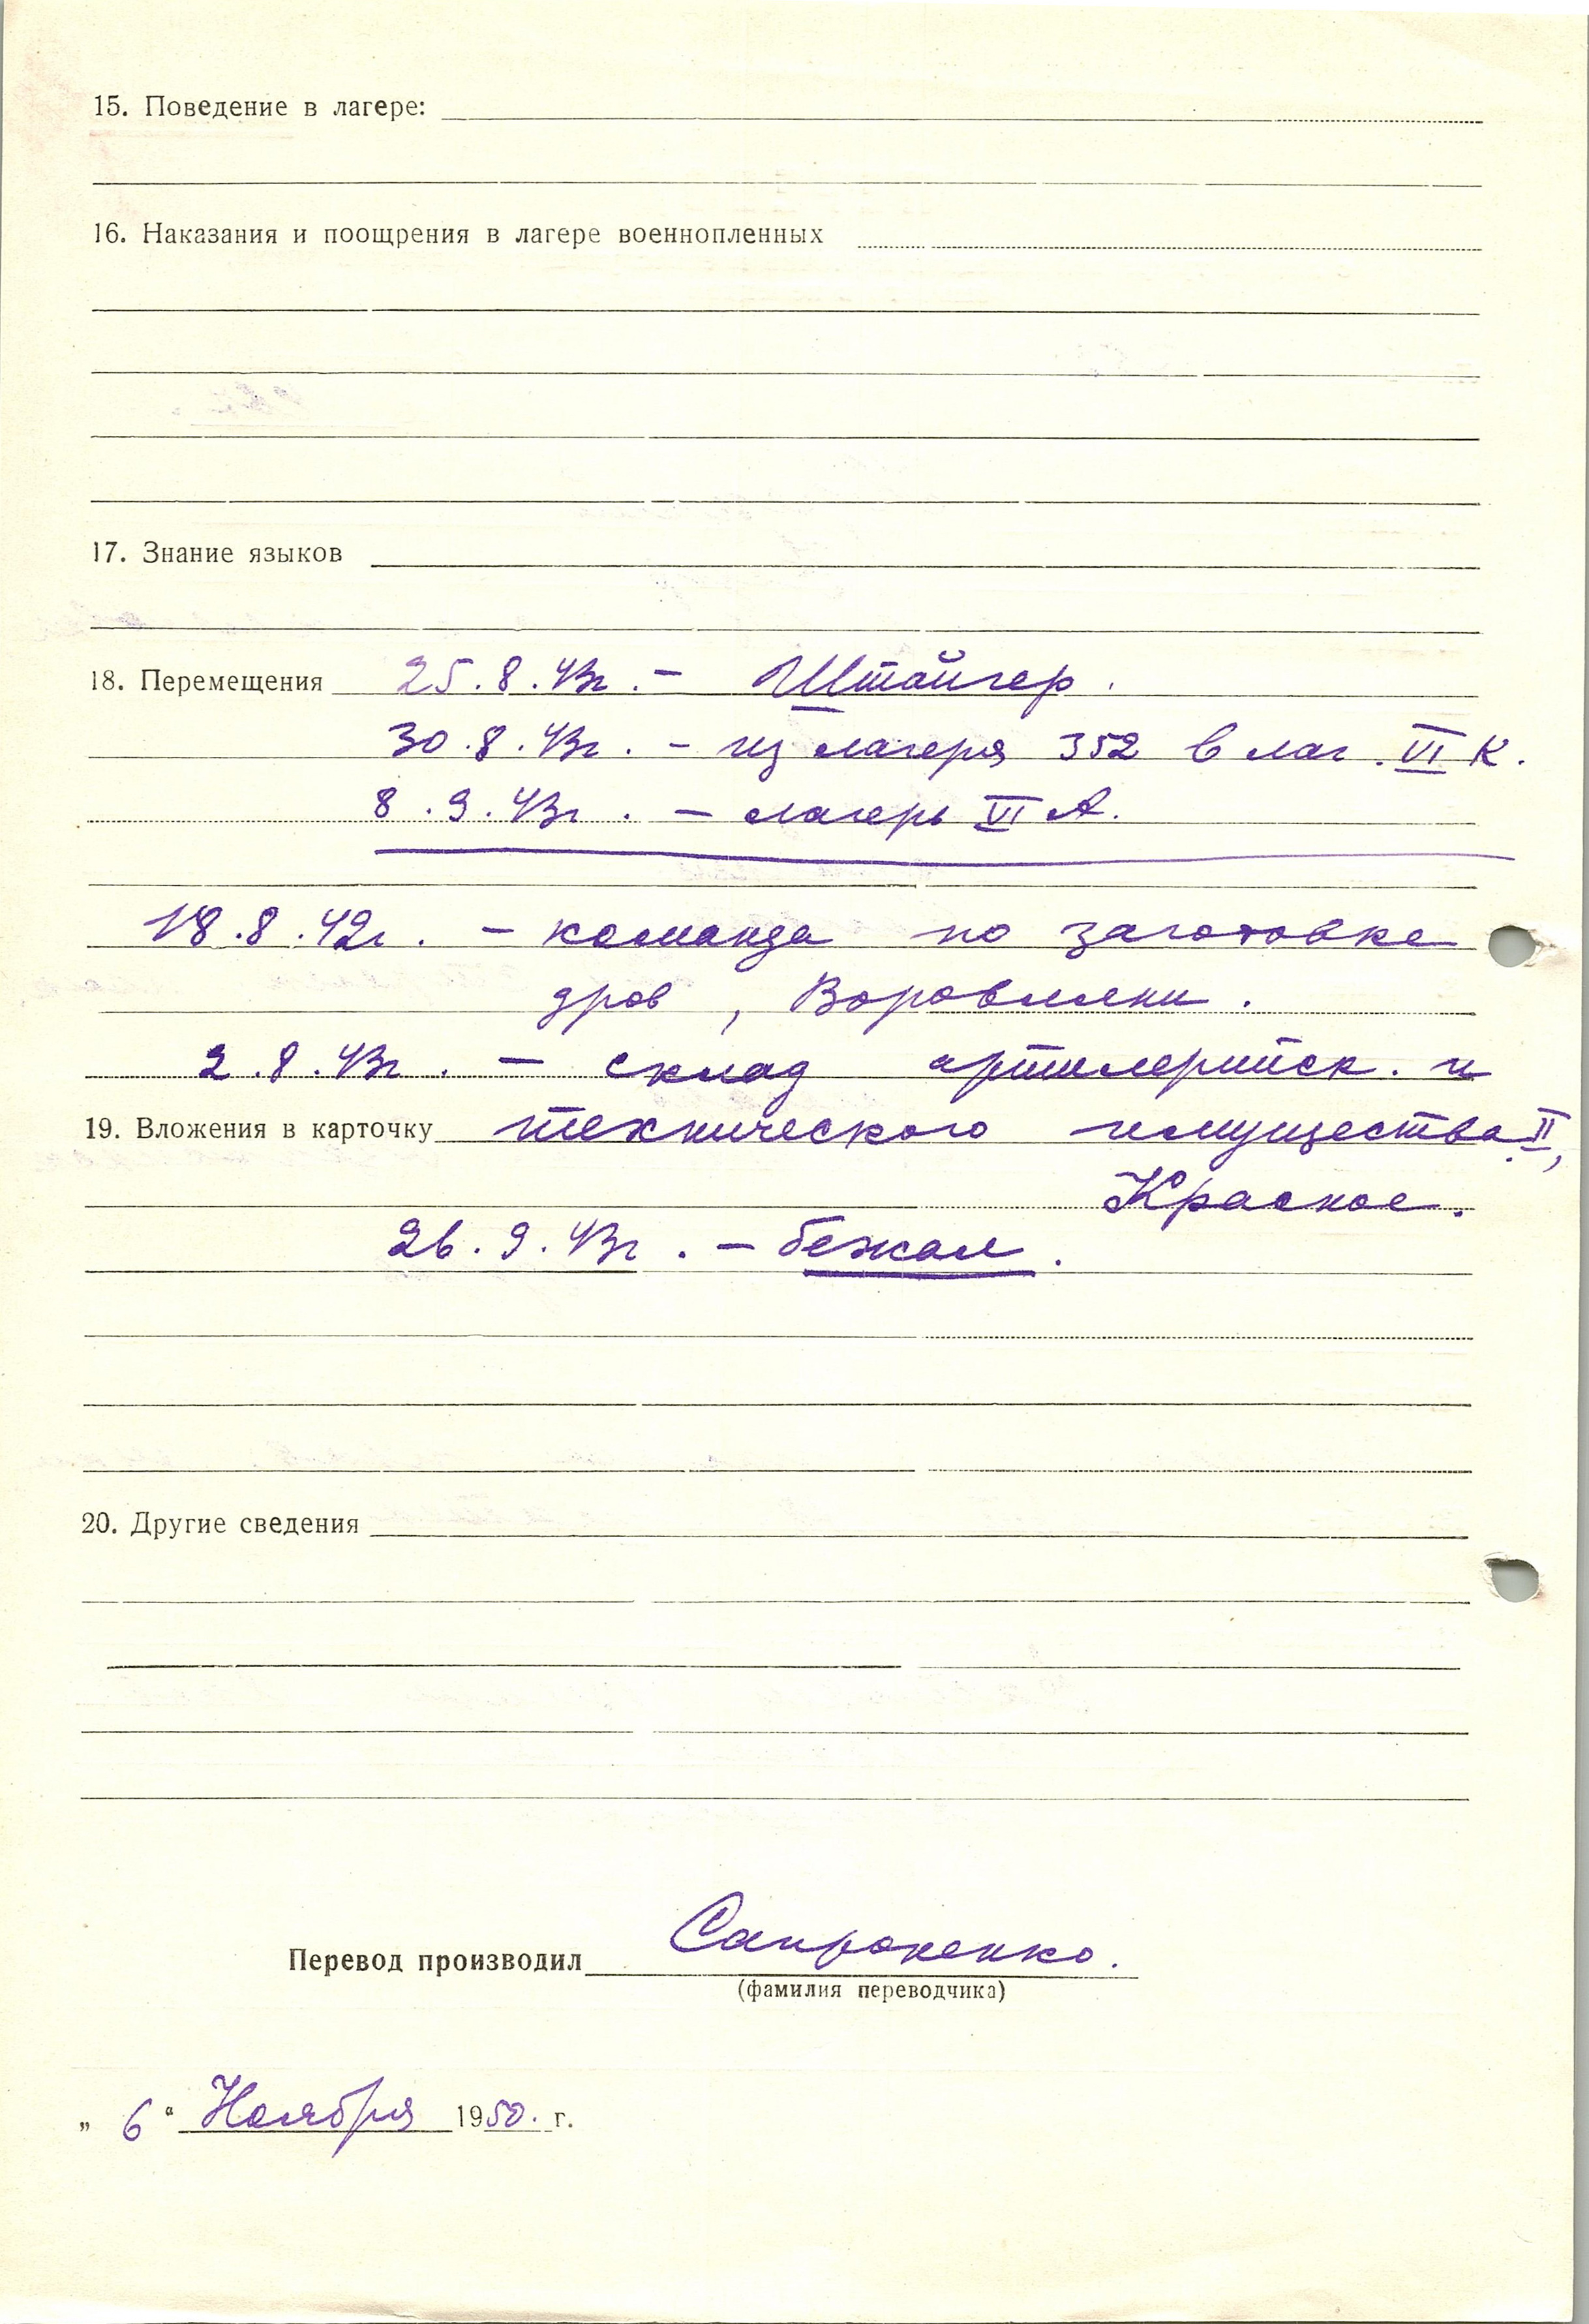 15. Поведение в лагере:
16. Наказания и поощрения в лагере военнопленных
17. Знание языков
18. Перемещения 25.8.43г. – Штайгер.
30.8.43г. – из лагеря 352 в лаг. VI К.
8.9.43г. – лагерь VI А.
18.8.42г. – команда по заготовке
дров, Воровляни.
2.8.43г. – склад артилерийск. и
19. Вложения в карточку технического имущества II,
Красное.
26.9.43г. – бежал.
20. Другие сведения
Перевод производил Сапроненко.
(фамилия переводчика)
„ 6 “ Ноября 1950. г.